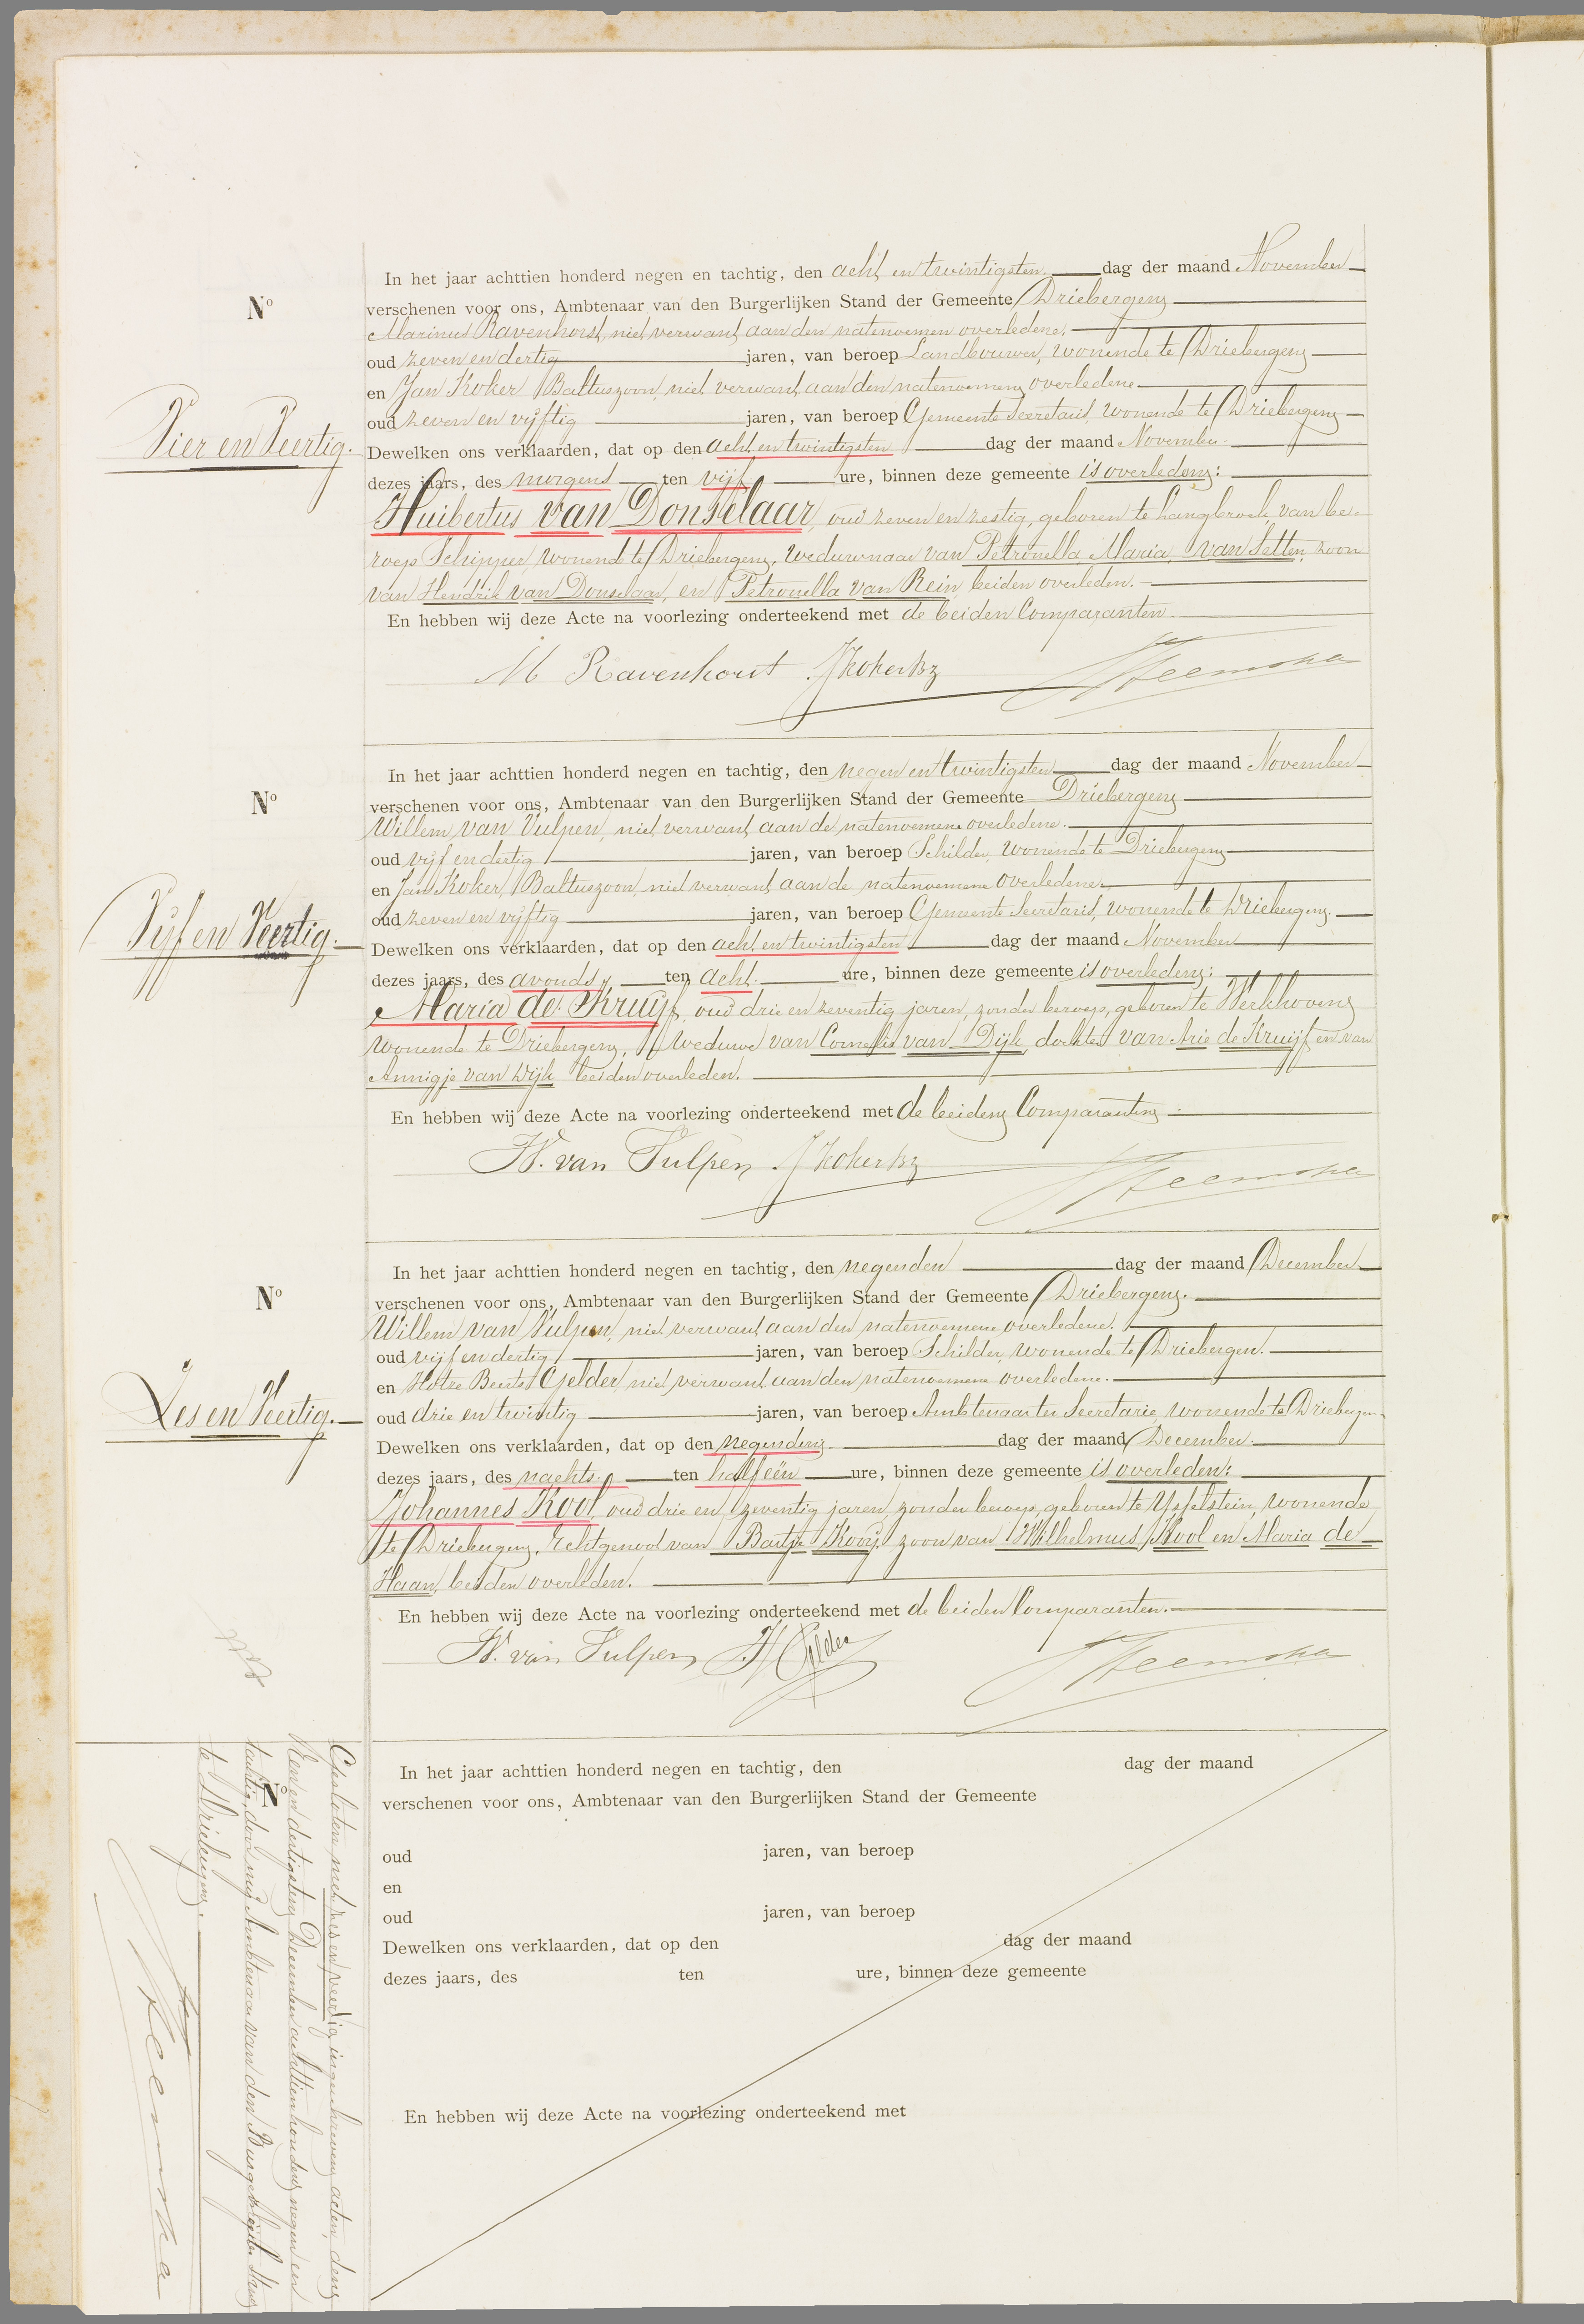 In het jaar achttien honderd negen en tachtig, den acht en twintigsten dag der maand November
Nº
verschenen voor ons, Ambtenaar van den Burgerlijken Stand der Gemeente Driebergen
Marinus Ravenhorst, niet verwant aan den natenoemen overledene.
oud zeven en dertig jaren, van beroep Landbouwer, wonende te Driebergen
en Jan Koker Baltuszoon, niet verwant aan den natenoemen overledene
oud zeven en vijftig jaren, van beroep Gemeente Secretaris, wonende te Driebergen
Vier en Veertig.
Dewelken ons verklaarden, dat op den acht en twintigsten dag der maand November.
dezes jaars, des morgens ten vijf ure, binnen deze gemeente is overleden:
Huibertus van Donselaar, oud zeven en zestig, geboren te Langbroek, van be-
roep Schipper, wonende te Driebergen, weduwnaar van Petronella Maria van Setten, zoon
van Hendrik van Donselaar, en Petronella van Rein, beiden overleden.
En hebben wij deze Acte na voorlezing onderteekend met de beiden Comparanten.
M Ravenhorst JKokerBz
In het jaar achttien honderd negen en tachtig, den negen en twintigsten dag der maand November
Nº
verschenen voor ons, Ambtenaar van den Burgerlijken Stand der Gemeente Driebergen
Willem van Vulpen, niet verwant aan de natenoemene overledene.
oud vijf en dertig jaren, van beroep Schilder, wonende te Driebergen
en Jan Koker, Baltuszoon, niet verwant aan de natenoemene overledene
oud zeven en vijftig jaren, van beroep Gemeente Secretaris, wonende te Driebergen.
Vijf en Veertig.
Dewelken ons verklaarden, dat op den acht en twintigsten dag der maand November
dezes jaars, des avonds ten acht ure, binnen deze gemeente is overleden:
Maria de Kruijf, oud drie en zeventig jaren, zonder beroep, geboren te Werkhoven
wonende te Driebergen, Weduwe van Cornelis van Dijk, dochter van Arie de Kruijf en van
Annigje van Wijk beiden overleden.
En hebben wij deze Acte na voorlezing onderteekend met de beiden Comparanten
W. van Vulpen JKokerBz
In het jaar achttien honderd negen en tachtig, den negenden dag der maand December
Nº
verschenen voor ons, Ambtenaar van den Burgerlijken Stand der Gemeente Driebergen.
Willem van Vulpen, niet verwant aan den natenoemene overledene.
oud vijf en dertig jaren, van beroep Schilder, wonende te Driebergen.
en Hotze Beerts Gelder, niet verwant aan den natenoemene overledene.
oud drie en twintig jaren, van beroep Ambtenaar ter Secretarie, wonende te Driebergen
Zes en Veertig.
Dewelken ons verklaarden, dat op den negenden dag der maand December.
dezes jaars, des nachts ten half eën ure, binnen deze gemeente is overleden:
Johannes Kool, oud drie en zeventig jaren, zonder beroep, geboren te Ysselstein, wonende
te Driebergen, Echtgenoot van Baatje Kooij, zoon van Wilhelmus Kool en Maria de
Haan, beiden overleden.
En hebben wij deze Acte na voorlezing onderteekend met de beiden Comparanten.
W. van Vulpen HGelder
In het jaar achttien honderd negen en tachtig, den dag der maand
Nº
verschenen voor ons, Ambtenaar van den Burgerlijken Stand der Gemeente
oud jaren, van beroep
en
oud jaren, van beroep
Dewelken ons verklaarden, dat op den dag der maand
dezes jaars, des ten ure, binnen deze gemeente
En hebben wij deze Acte na voorlezing onderteekend met
Gesloten met zes en veertig ingeschreven acten, den
een en dertigsten December achttien honderd negen en
tachtig, door mij Ambtenaar van den Burgerlijken Stand
te Driebergen.